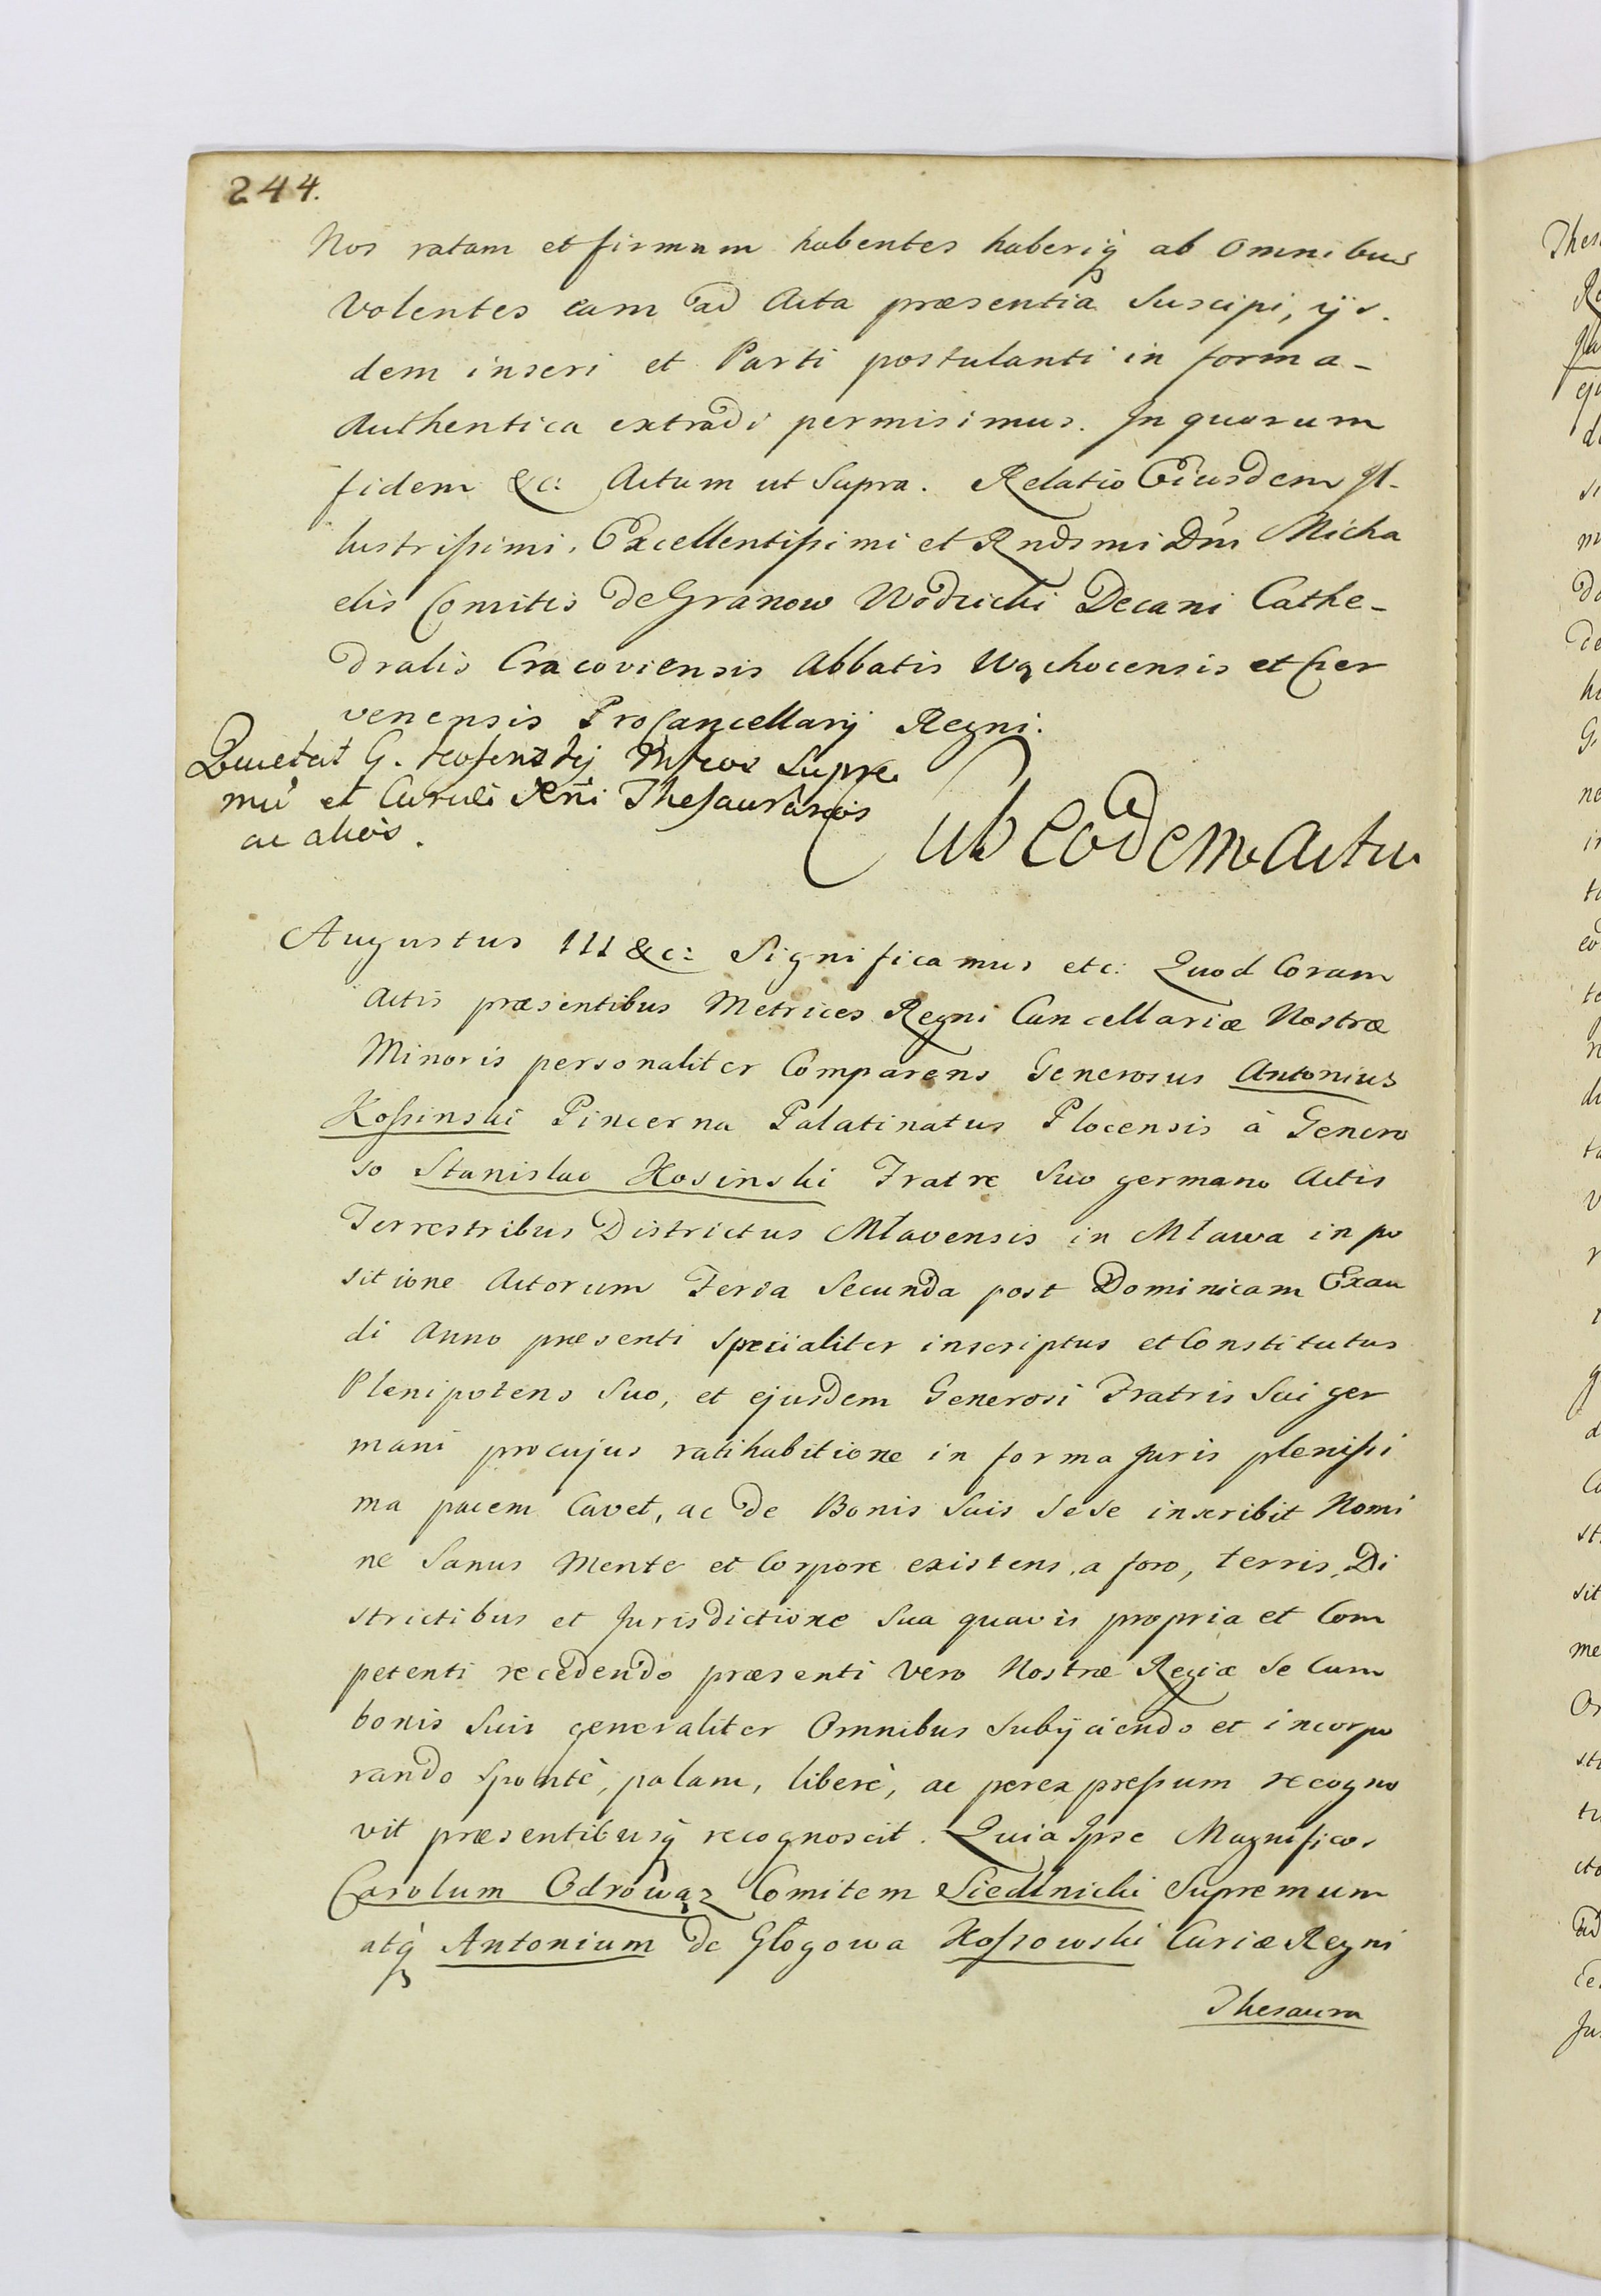 244.
Nos ratam et firmam habentes haberiq́ ab omnibus
Volentes eam ad Acta præsentia Suscipi, ijs-
dem inseri et Parti postulanti in forma-
Authentica extradi permisimus. In quorum
fidem &c: Actum ut Supra. Relatio Eiusdem Il-
lustrissimi, Excellentissimi et Rndsmi Dni Micha
elis Comitis de Granow Wodzicki Decani Cathe-
dralis Cracoviensis Abbatis Wąchocensis et Czer
venensis ProCancellarij Regni.
Quietat G. Kossinskij Mfcos Supre
mu et Curiæ Regni Thesaurarios
ac alios.
Sub eodem actu
Augustus III &c: Significamus etc: Quod Coram
Actis præsentibus Metrices Regni Cancellariæ Nostræ
Minoris personaliter Comparens Generosus Antonius
Kossinski Pincerna Palatinatus Plocensis à Genero
so Stanislao Kosinski Fratre Suo germano Actis
Terrestribus Districtus Mlavensis in Mława in po
sitione Actorum Feria Secunda post Dominicam Exau
di Anno præsenti specialiter inscriptus et Constitutus
Plenipotens Suo, et ejusdem Generosi Fratris Sui ger
mani pro cujus ratihabitione in forma Juris plenissi
ma pacem Cavet, ac de Bonis Suis Sese inscribit Nomi
ne Sanus Mente et Corpore existens, a foro, terris, Di
strictibus et Jurisdictione Sua quavis propria et Com
petenti recedendo præsenti Vero Nostræ Regiæ Se Cum
bonis Suis generaliter Omnibus Subijciendo et incorpo
rando Spontè, palam, liberè, ac per expressum recogno
vit præsentibusq́ recognoscit. Quia Ipse Magnificos
Carolum Odrowąz Comitem Siedlnicki Supremum
atq́ Antonium de Głogowa Kossowski Curiæ Regni
Thesaura